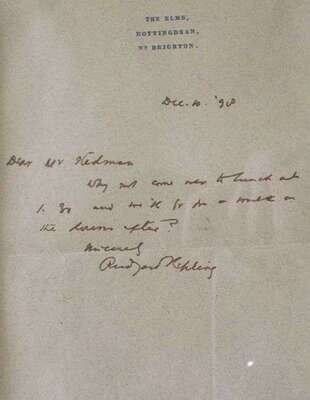 THE ELMS,
ROTTINGDEAN,
Nr BRIGHTON.
Dec. 10. '98
Dear Mr Hedman
Why not come over to lunch at
1.30 and we'll go for a walk on
the downs after?
Sincerely
Rudyard Kipling